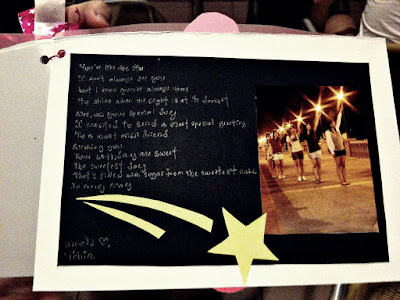 You're like the star
I don't always see you
but I know you're always there
To shine when the night is at its darkest
and on your special day
I wanted to send a most special greeting
To a most nicest friend
wishing you
Your birthday are sweet
The sweetest day
That's filled with sugar from the sweetest cake
in every way